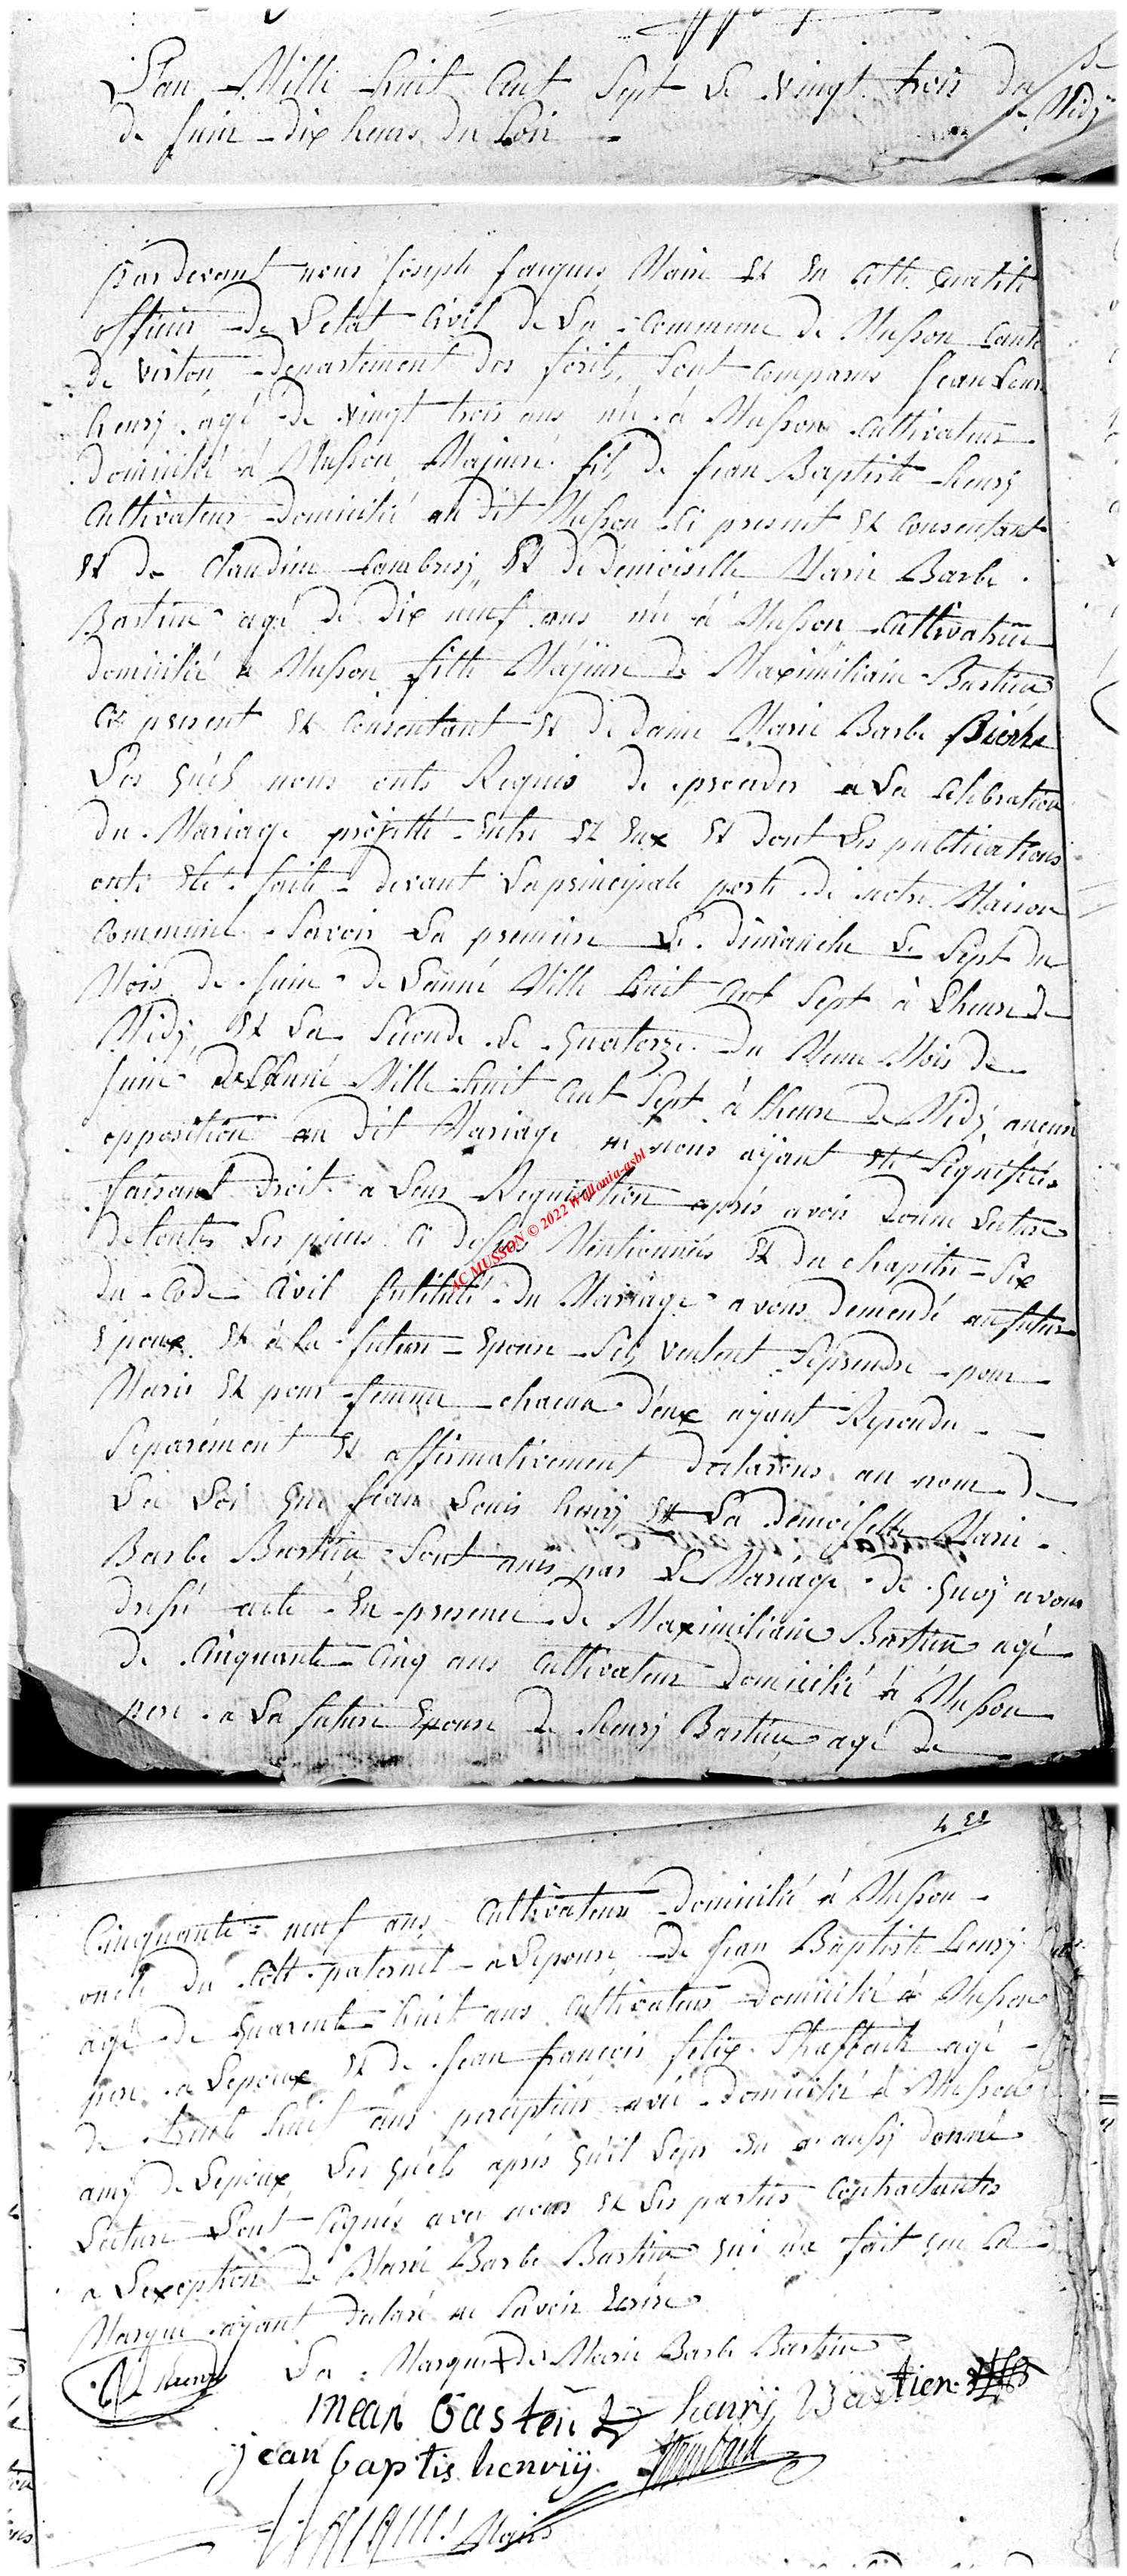 L'an Mille huit Cent Sept Le vingt trois du
de Juin dix heures du Soir
de Midy
Pardevant nous Joseph Jacques Maire Et En Cette qualité
officier de Letat Civil de La Commune de Musson Cant
de virton departement des forêts, Sont Comparus Jean Louis
henry agé de vingt trois ans né à Musson Cultivateur
domicilié à Musson Majeure fils de Jean Baptiste henry
Cultivateur domicilié au dit Musson Ci present Et Consentant
Et de Claudine Cambresy, Et de demoiselle Marie Barbe
Bastien agé de dix neuf ans née à Musson Cultivatrice
domicilié a Musson fille Majeure de Maximiliain Bastien
Ci present Et Consentant Et de dame Marie Barbe
Les quels nous onts Requis de proceder a La Celebration
du Mariage projetté Entre Et Eux Et dont Les publications
onts Eté faite devant La principale porte de notre Maison
Commune Savoir La premiere Le dimanche Le Sept du
Mois de Juin de Lanné Mille huit Cent Sept à Lheure de
Midy Et La Seconde Le quatorze du Meme Mois de
Juin de Lanné Mille huit Cent Sept à Lheure de Midy, aucune
opposition au dit Mariage ne nous ayant Eté Signifiée
faisant droit a Leur Requisition après avoir donné Lecture
de toutes Les pieces Ci dessus Mentionnées Et du chapitre Six
du Code Civil Intitulé du Mariage avons demendé au futur
Epoux Et à La future Epouse Sils veulent Seprendre pour
Maris Et pour femme chacun d'eux ayant Repondu
Separément Et affirmativement declarons au nom de
La Loi que Jean Louis henry Et La demoiselle Marie
Barbe Bastien Sont unis par Le Mariage de quoy avons
dressé acte En presence de Maximiliain Bastien agé
de Cinquante Cinq ans Cultivateur domicilié à Musson
pere a La future Epouse de henry Bastien agé de
Cinquante neuf ans Cultivateur domicilié à Musson
oncle du Coté paternel a Lepouse, de Jean Baptiste henry
agé de quarente huit ans Cultivateur domicilié à Musson
pere a Lepoux Et de Jean françois felix agé
de trente huit ans domicilié à Musson
amy de Lepoux Les quels après quil Leur En a aussy donné
Lecture Sont Signés avec nous Et Les parties Contractantes
a Lexeption de Marie Barbe Bastien qui n'a fait que Sa
Marque ayant declaré ne Savoir Ecrire
La Marque de Marie Barbe Bastien
henry
mean basten henrij Bastien
jean baptis henriy
Maire
AC MUSSON © 2022 Wallonia-asbl